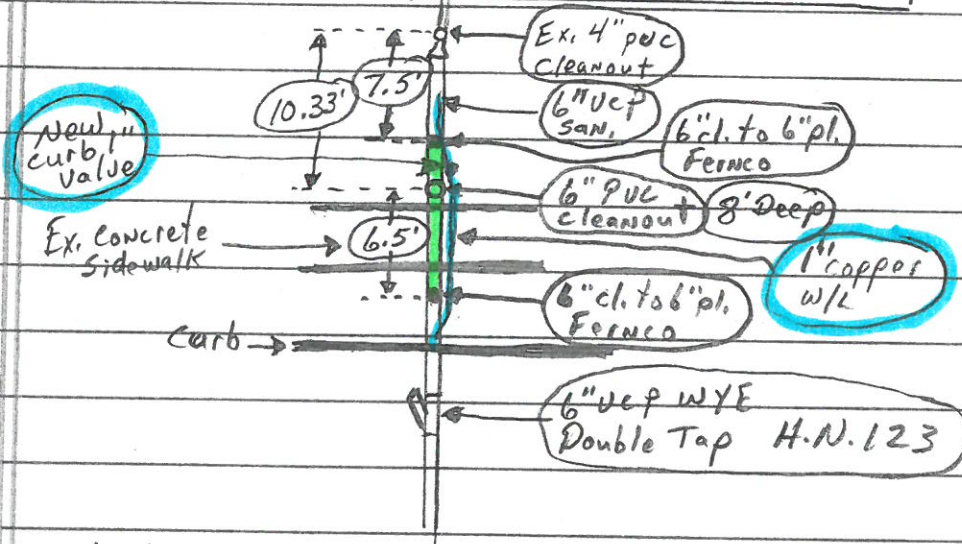 Ex. 4" pvc
Cleanout
7.5'
10.33'
6" VCP
San.
New 1"
curb
valve
6"cl. to 6"pl.
Fernco
6" PVC
cleanout
8' Deep
Ex. concrete
sidewalk
6.5'
1" copper
W/L
6"cl. to 6"pl.
Fernco
Curb
6" VCP WYE
Double Tap H.N. 123